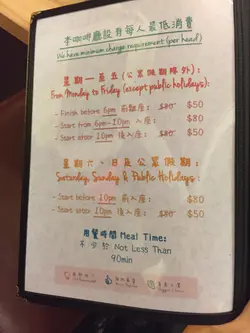 本咖啡廳設有每人最低消費
We have minimum charge requirement (per head)
星期一至五 (公眾假期除外):
From Monday to Friday (except public holidays):
- Finish before 6pm 前離座: $80 $50
- Start from 6pm-10pm 入座: $80
- Start after 10pm 後入座: $80 $50
星期六、日及公眾假期:
Saturday, Sunday & Public Holidays:
- Start before 10pm 前入座: $80
- Start after 10pm 後入座: $80 $50
用餐時間 Meal Time:
不少於 Not Less Than
90min